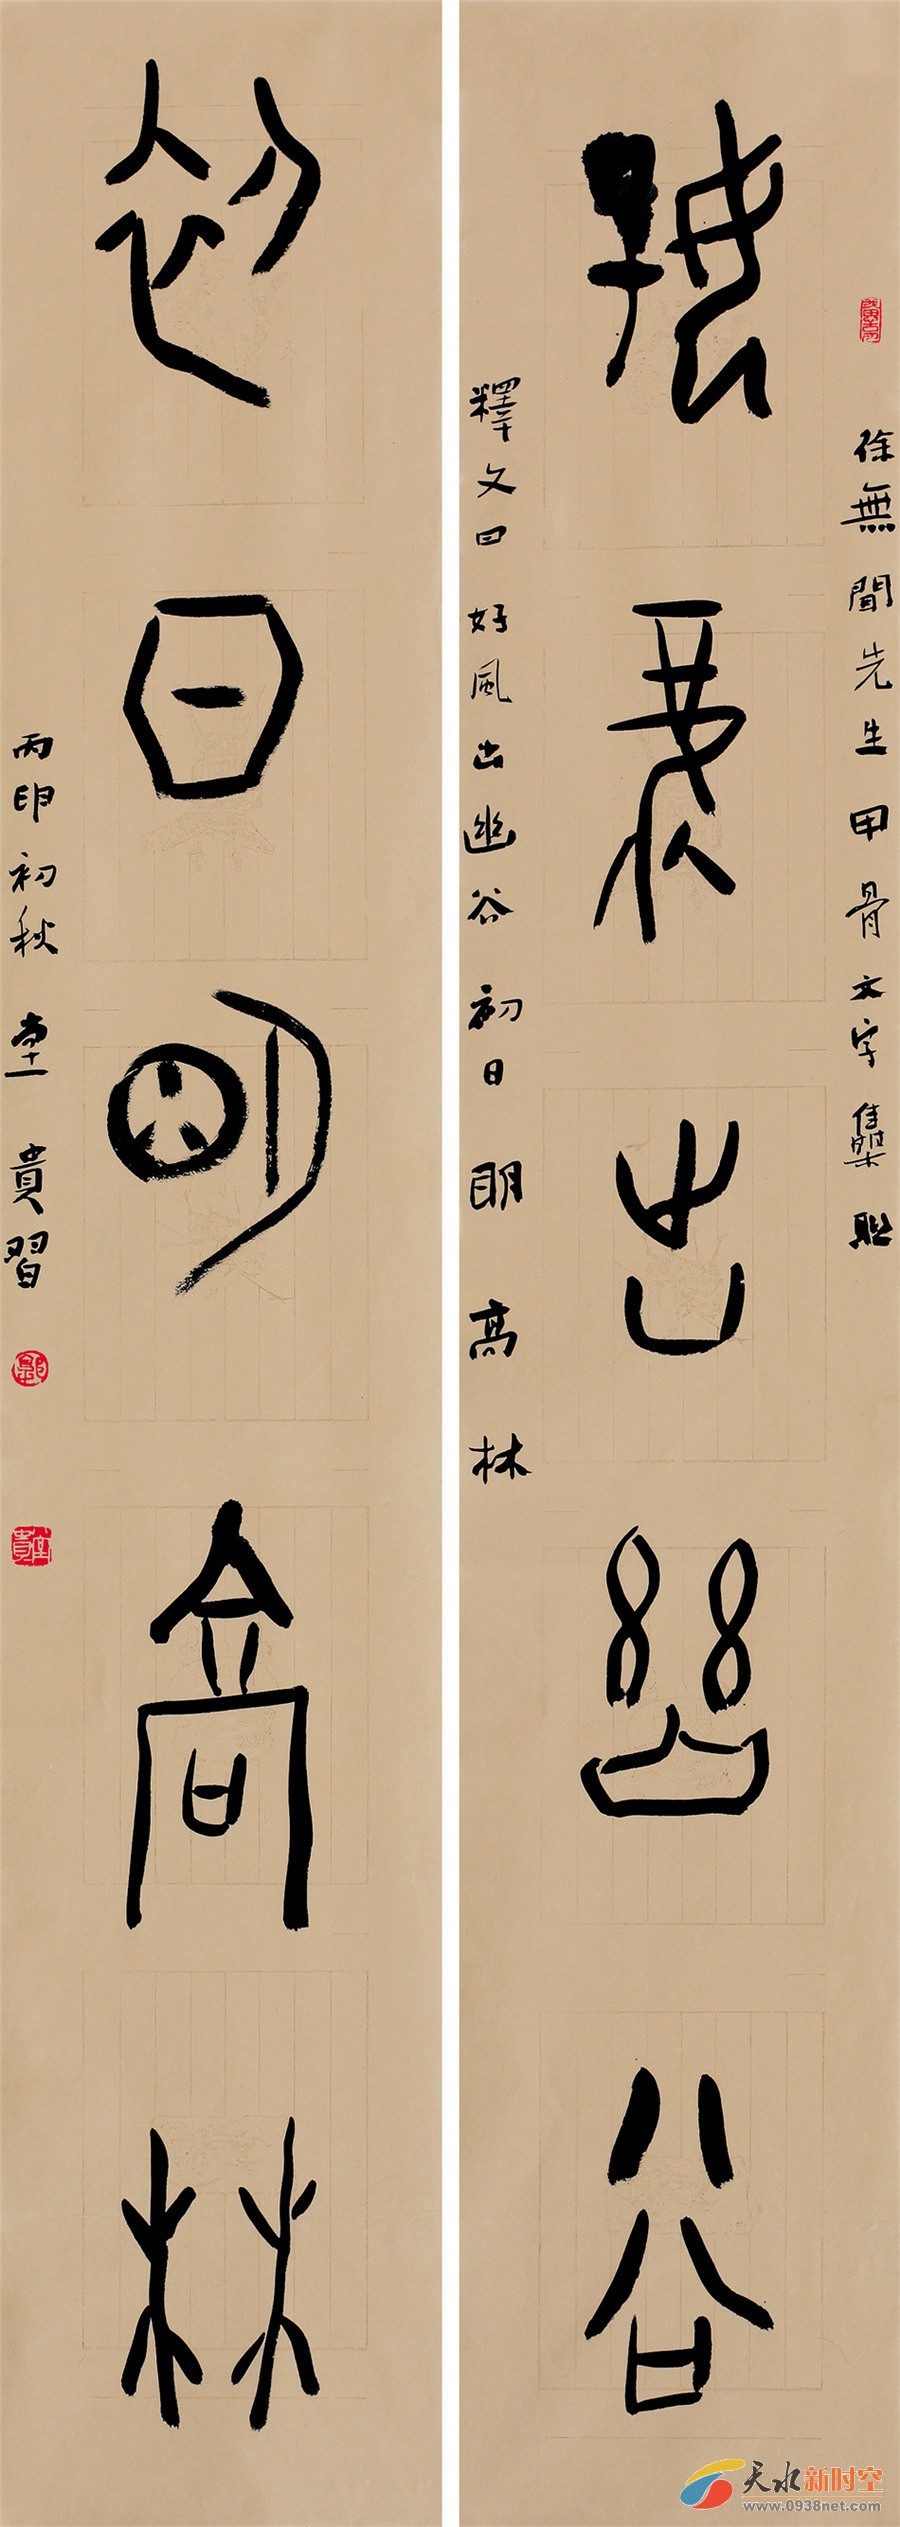 徐無聞先生甲骨文字集聯
好風出幽谷
釋文曰好風出幽谷初日明高林
初日明高林
丙申初秋堂貴習
天水新时空
www.0938net.com